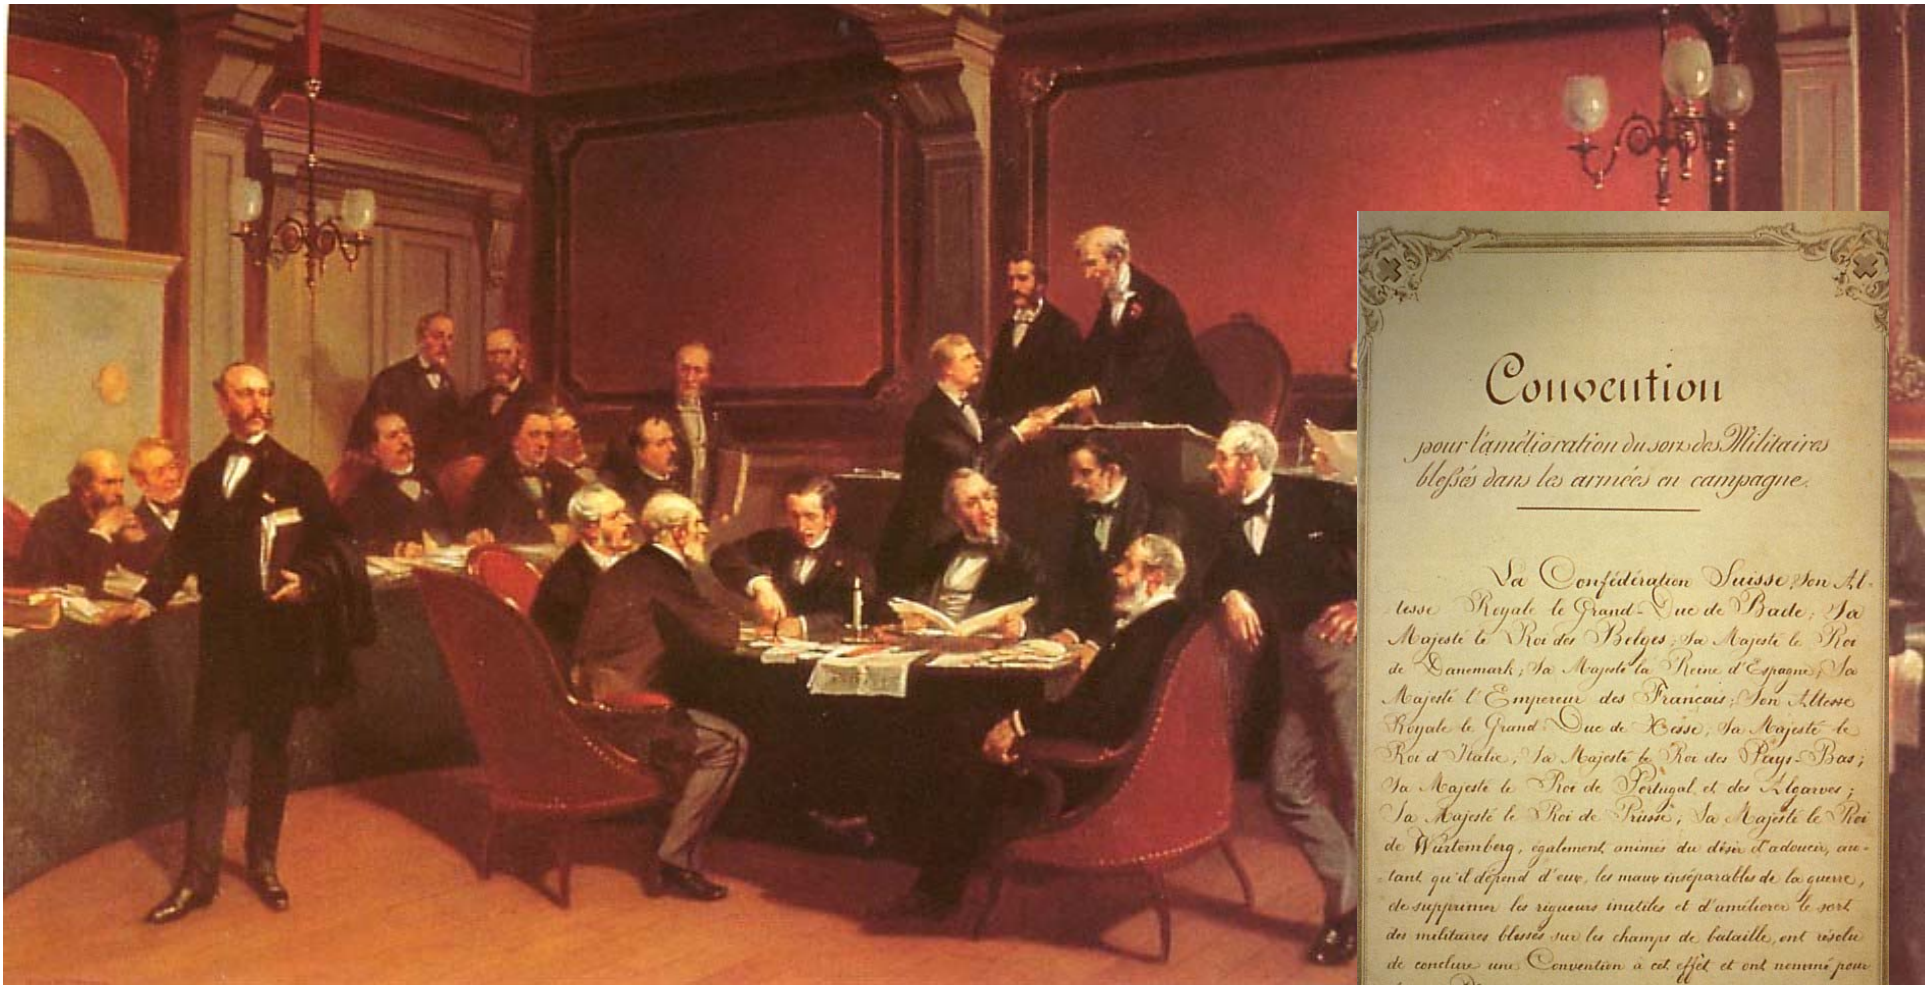 Convention
pour l'amélioration du sort des Militaires
blessés dans les armées en campagne.
La Confédération Suisse; Son Al-
tesse Royale le Grand-Duc de Bade; Sa
Majesté le Roi des Belges; Sa Majesté le Roi
de Danemark; Sa Majesté la Reine d'Espagne; Sa
Majesté l'Empereur des Français; Son Altesse
Royale le Grand-Duc de Hesse; Sa Majesté le
Roi d'Italie; Sa Majesté le Roi des Pays-Bas;
Sa Majesté le Roi de Portugal et des Algarves;
Sa Majesté le Roi de Prusse; Sa Majesté le Roi
de Würtemberg, également animés du désir d'adoucir, au-
tant qu'il dépend d'eux, les maux inséparables de la guerre,
de supprimer les rigueurs inutiles et d'améliorer le sort
des militaires blessés sur les champs de bataille, ont résolu
de conclure une Convention à cet effet et ont nommé pour